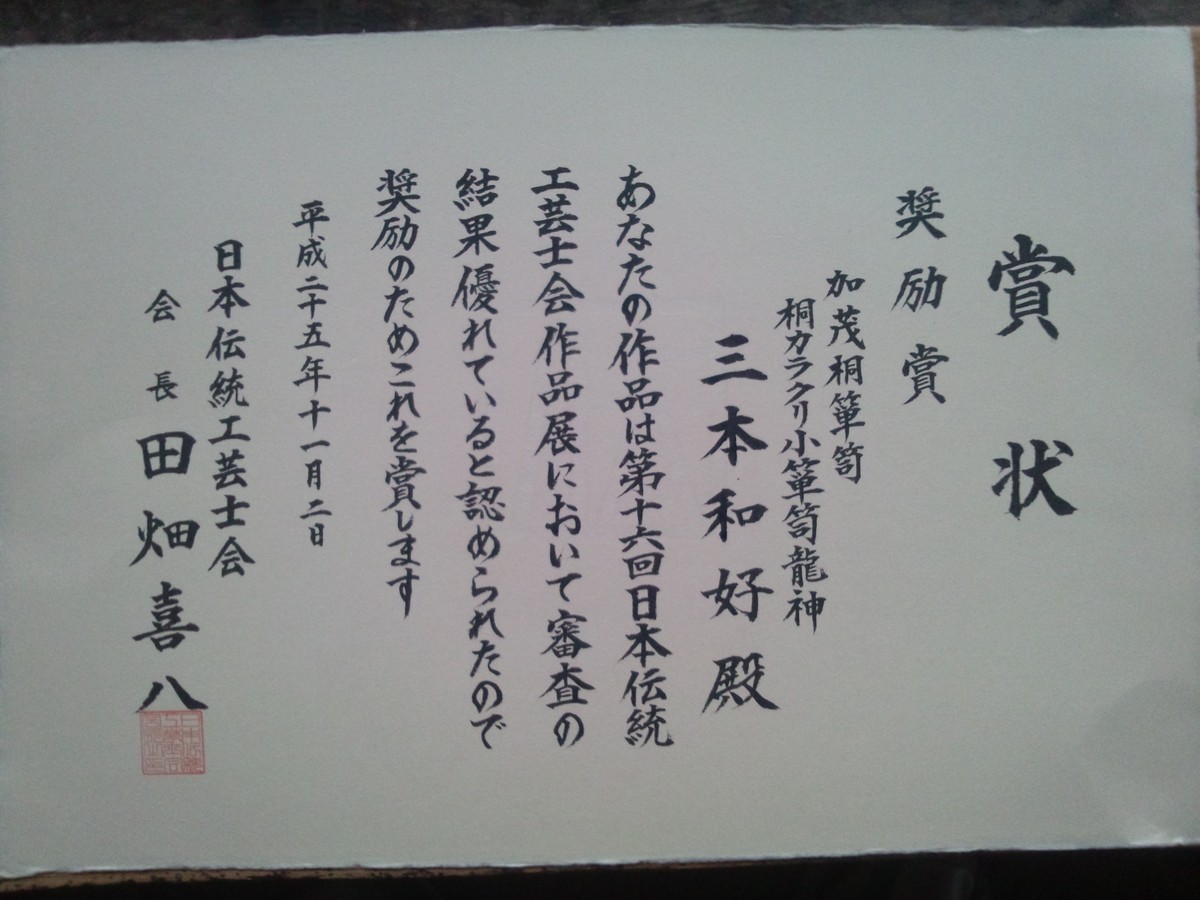 賞状
奨励賞
加茂桐箪笥
桐カラクリ小箪笥龍神
三本和好殿
あなたの作品は第十六回日本伝統
工芸士会作品展において審査の
結果優れていると認められたので
奨励のためこれを賞します
平成二十五年十一月二日
日本伝統工芸士会
会長 田畑喜八